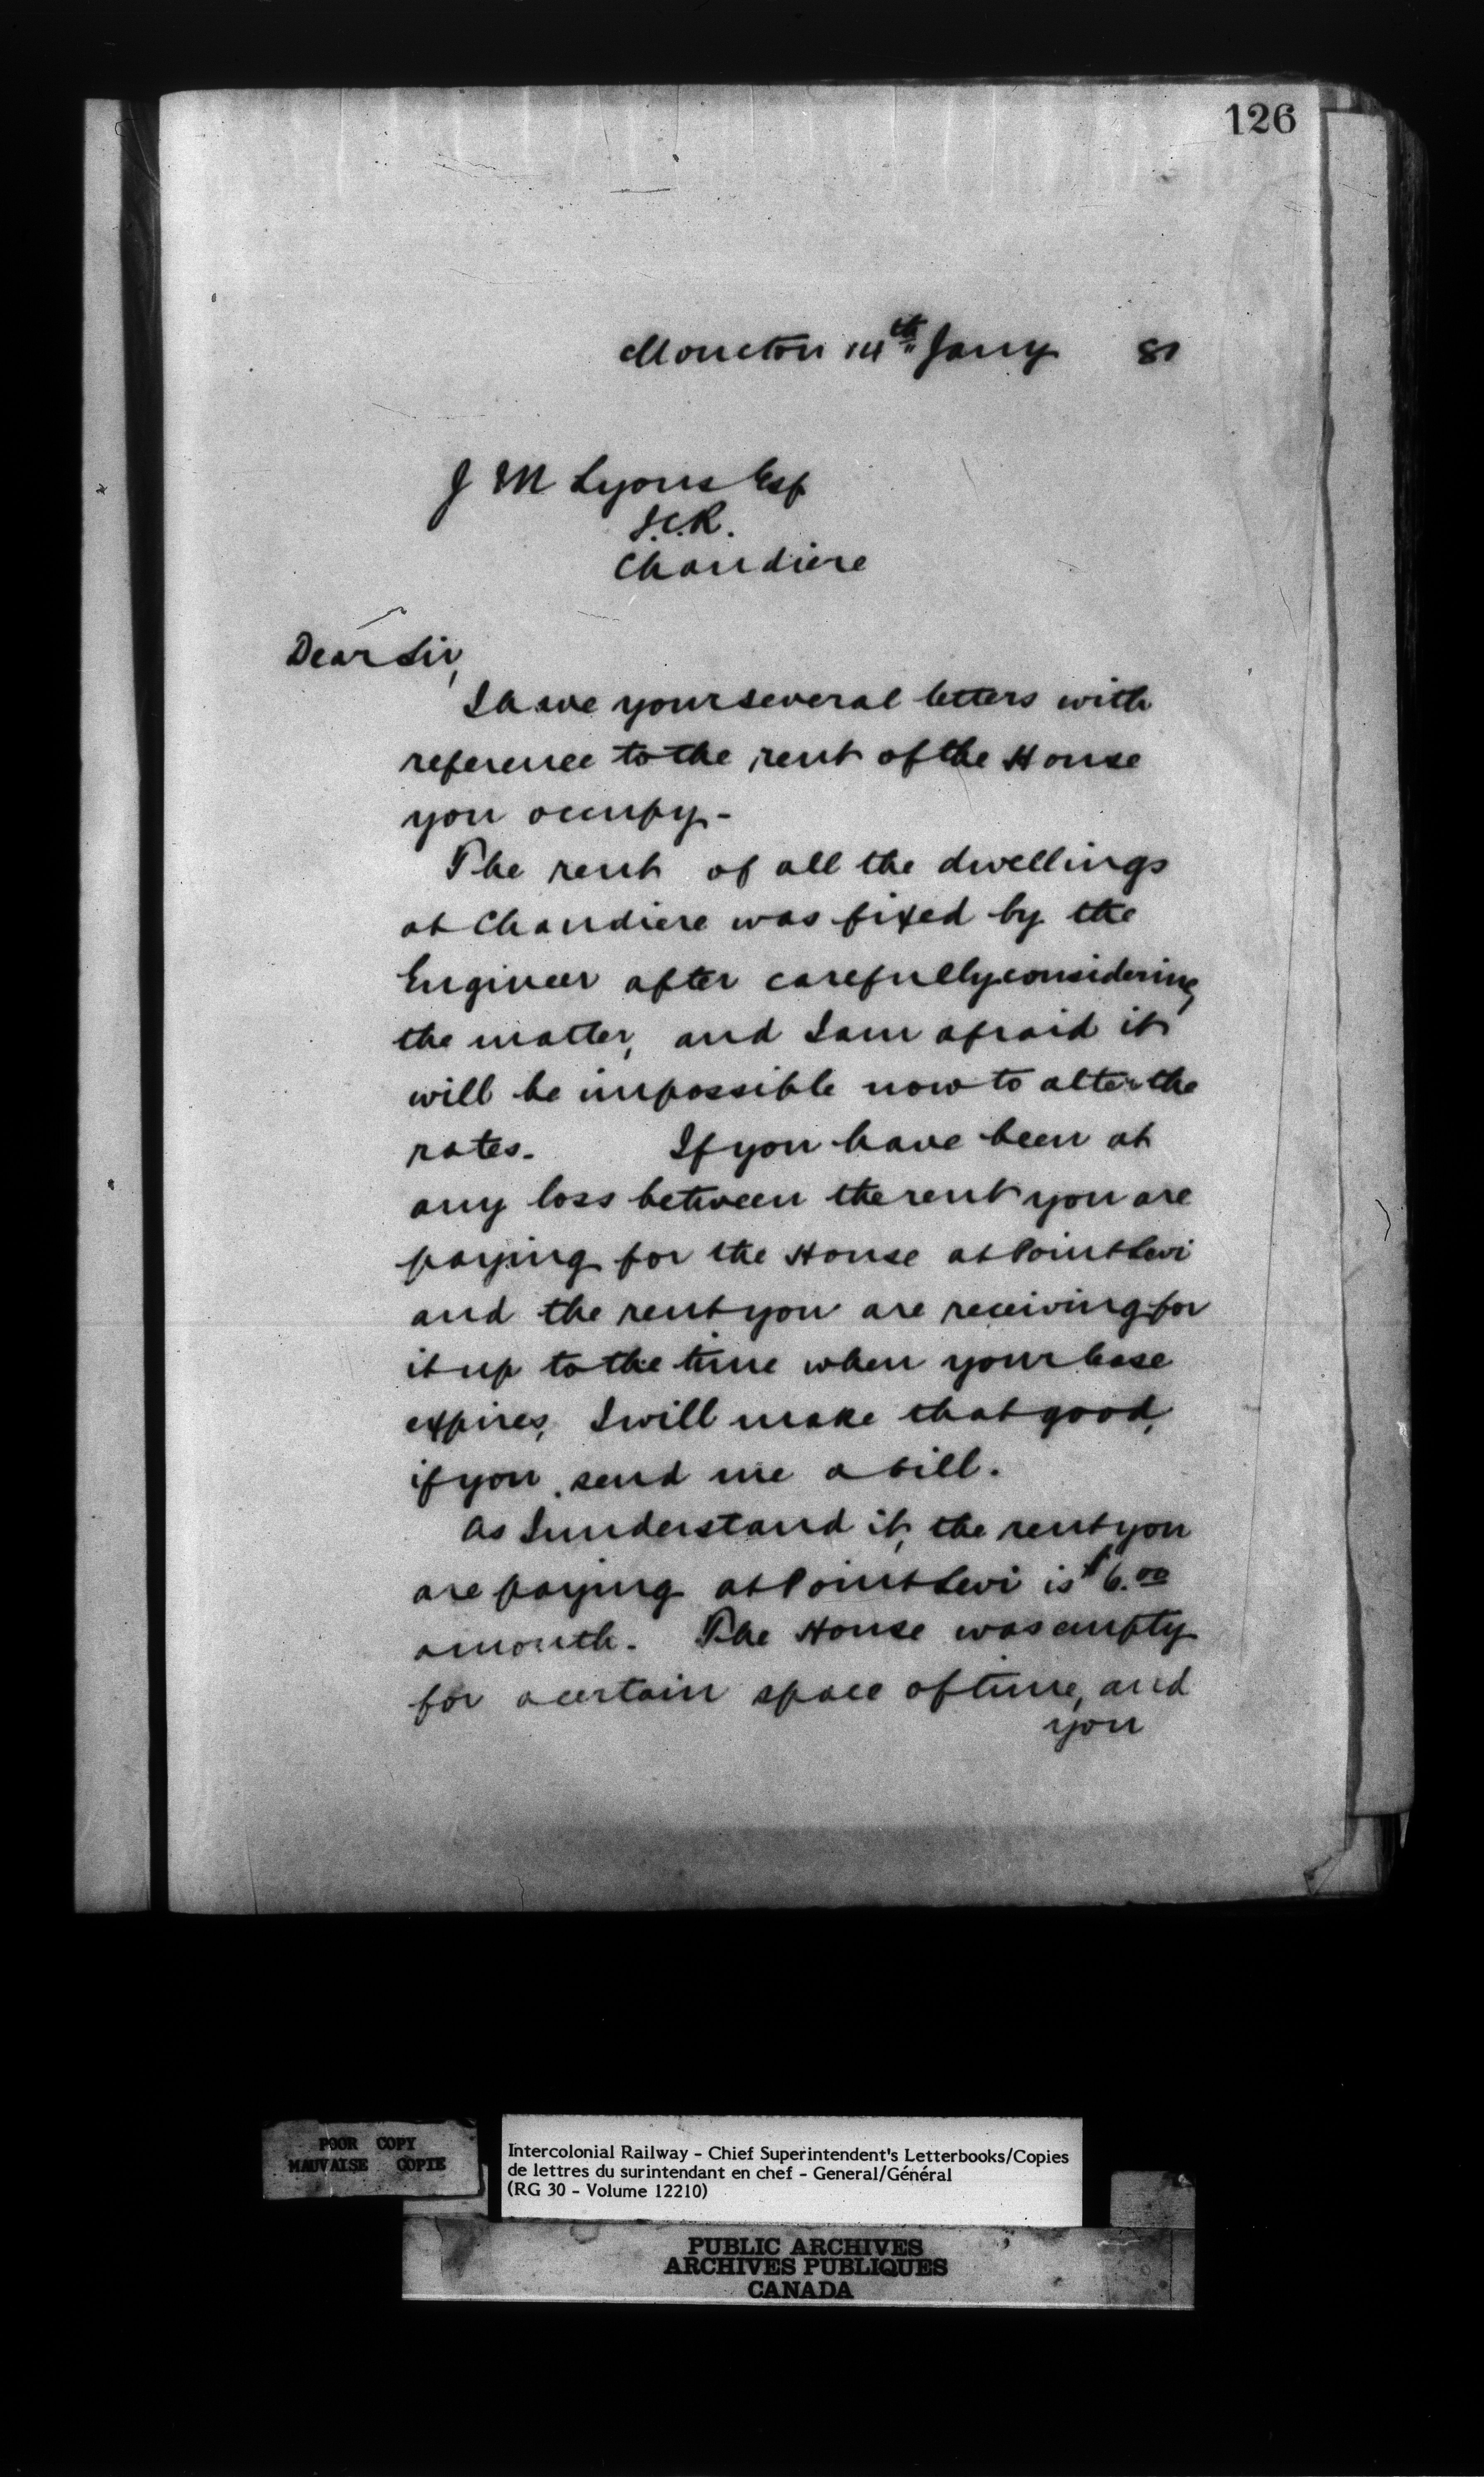 126
Moncton 14th Jany 81
J M Lyons Esq
I.C.R.
Chaudiere
Dear Sir,
I have your several letters with
reference to the rent of the House
you occupy-
The rent of all the dwellings
at Chaudiere was fixed by the
Engineer after carefully considering
the matter, and I am afraid it
will be impossible now to alter the
rates. If you have been at
any loss between the rent you are
paying for the House at Point Levi
and the rent you are receiving for
it up to the time when your lease
expires, I will make that good,
if you send me a bill.
As I understand it, the rent you
are paying at Point Levi is $6.00
a month. The House was empty
for a certain space of time, and
you
POOR COPY
MAUVAISE COPIE
Intercolonial Railway - Chief Superintendent's Letterbooks/Copies
de lettres du surintendant en chef - General/Général
(RG 30 - Volume 12210)
PUBLIC ARCHIVES
ARCHIVES PUBLIQUES
CANADA